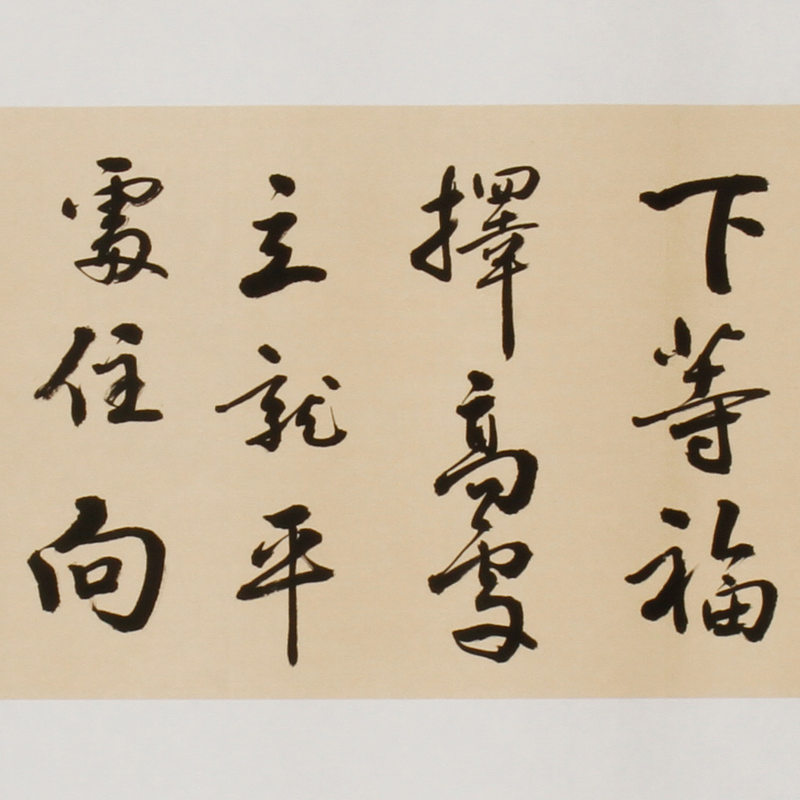 下等福
擇高處
立就平
處住向